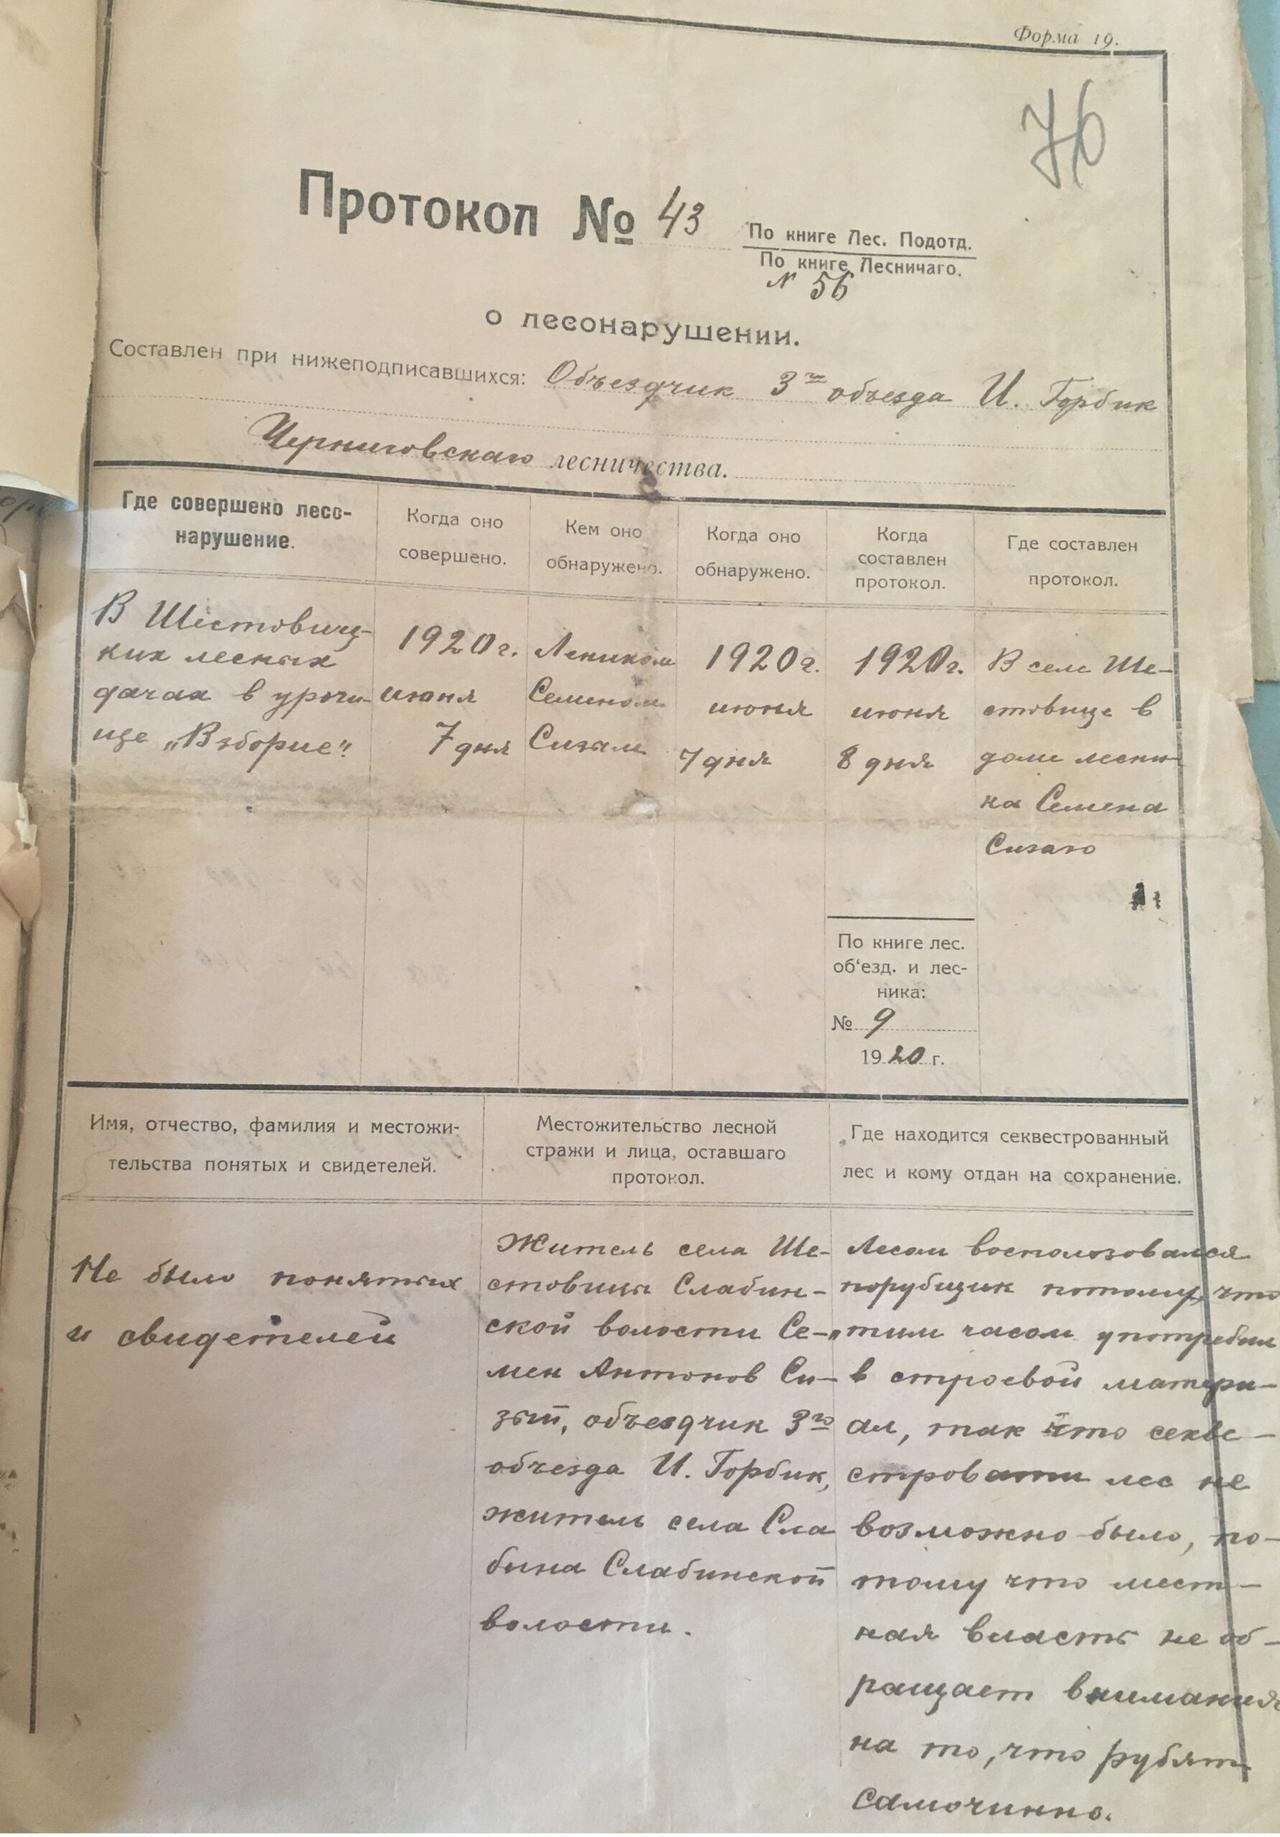 Форма 19.
76
Протокол № 43
По книге Лес. Подотд.
По книге Лесничаго.
№ 56
о лесонарушении.
Составлен при нижеподписавшихся: Объездчик 3го объезда И. Горбик
Черниговскаго лесничества.
Где совершено лесо-
нарушение.
Когда оно
совершено.
Кем оно
обнаружено.
Когда оно
обнаружено.
Когда
составлен
протокол.
Где составлен
протокол.
В Шестовиц-
ких лесных
дачах в урочи-
ще „Взборие“
1920 г.
июня
7 дня
Лесником
Семеном
Сизым
1920 г.
июня
7 дня
1920 г.
июня
8 дня
В селе Ше-
стовице в
доме лесни-
ка Семена
Сизаго
По книге лес.
об'езд. и лес-
ника:
№ 9
1920 г.
Имя, отчество, фамилия и местожи-
тельства понятых и свидетелей.
Местожительство лесной
стражи и лица, оставшаго
протокол.
Где находится секвестрованный
лес и кому отдан на сохранение.
Не было понятых
и свидетелей
Житель села Ше-
стовицы Слабин-
ской волости Се-
мен Антонов Си-
зый, объездчик 3го
объезда И. Горбик,
житель села Сла
бина Слабинской
волости.
Лесом воспользовался
порубщик потому, что
тим часом употребил
в строевой матери-
ал, так что секве-
стровати лес не
возможно было, по-
тому что мест-
ная власть не об-
ращает внимания
на то, что рубят
самочинно.